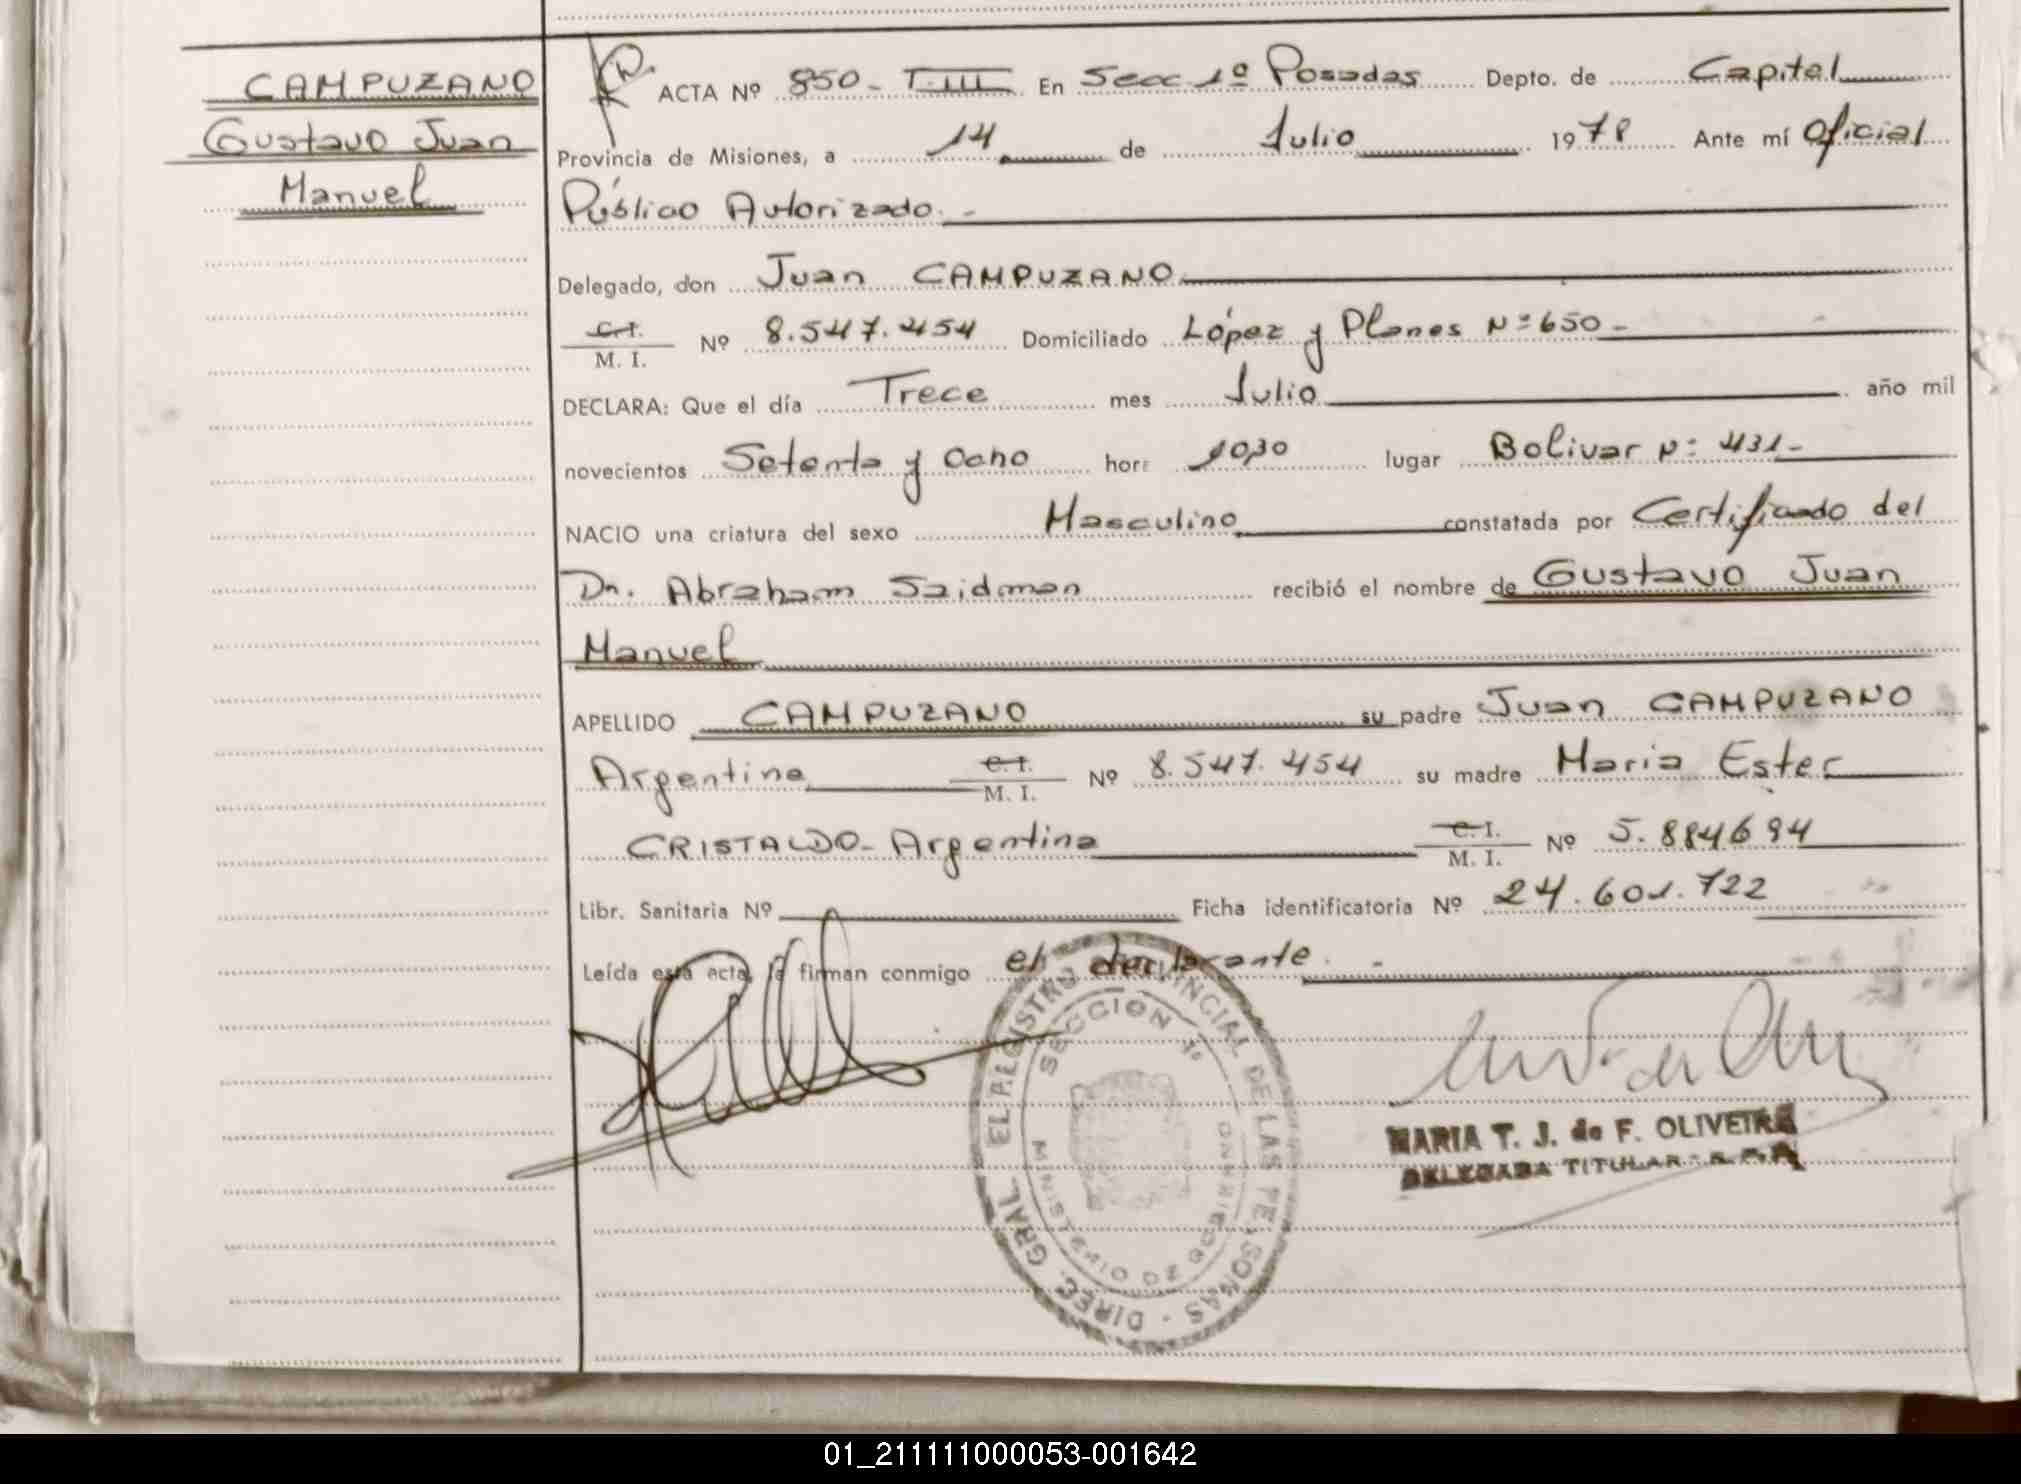 CAMPUZANO
Gustavo Juan
Manuel
ACTA Nº 850 - T.III En Secc 1º Posadas Depto. de Capital
Provincia de Misiones, a 14 de Julio 1978 Ante mí Oficial
Público Autorizado. -
Delegado, don Juan CAMPUZANO
C.I.
M. I. Nº 8.547.454 Domiciliado López y Planes Nº 650 -
DECLARA: Que el día Trece mes Julio año mil
novecientos Setenta y Ocho hora 10,30 lugar Bolivar Nº 431 -
NACIO una criatura del sexo Masculino constatada por Certificado del
Dr. Abraham Saidman recibió el nombre de Gustavo Juan
Manuel
APELLIDO CAMPUZANO su padre Juan CAMPUZANO
Argentino C.I.
M. I. Nº 8.547.454 su madre Maria Ester
CRISTALDO - Argentina C.I.
M. I. Nº 5.884694
Libr. Sanitaria Nº Ficha identificatoria Nº 24.601.722
Leída esta acta, la firman conmigo el declarante. -
DIREC. GRAL. DEL REGISTRO PROVINCIAL DE LAS PERSONAS -
SECCION 1º
MINISTERIO DE GOBIERNO
MARIA T. J. de F. OLIVEIRA
DELEGADA TITULAR
01_211111000053-001642